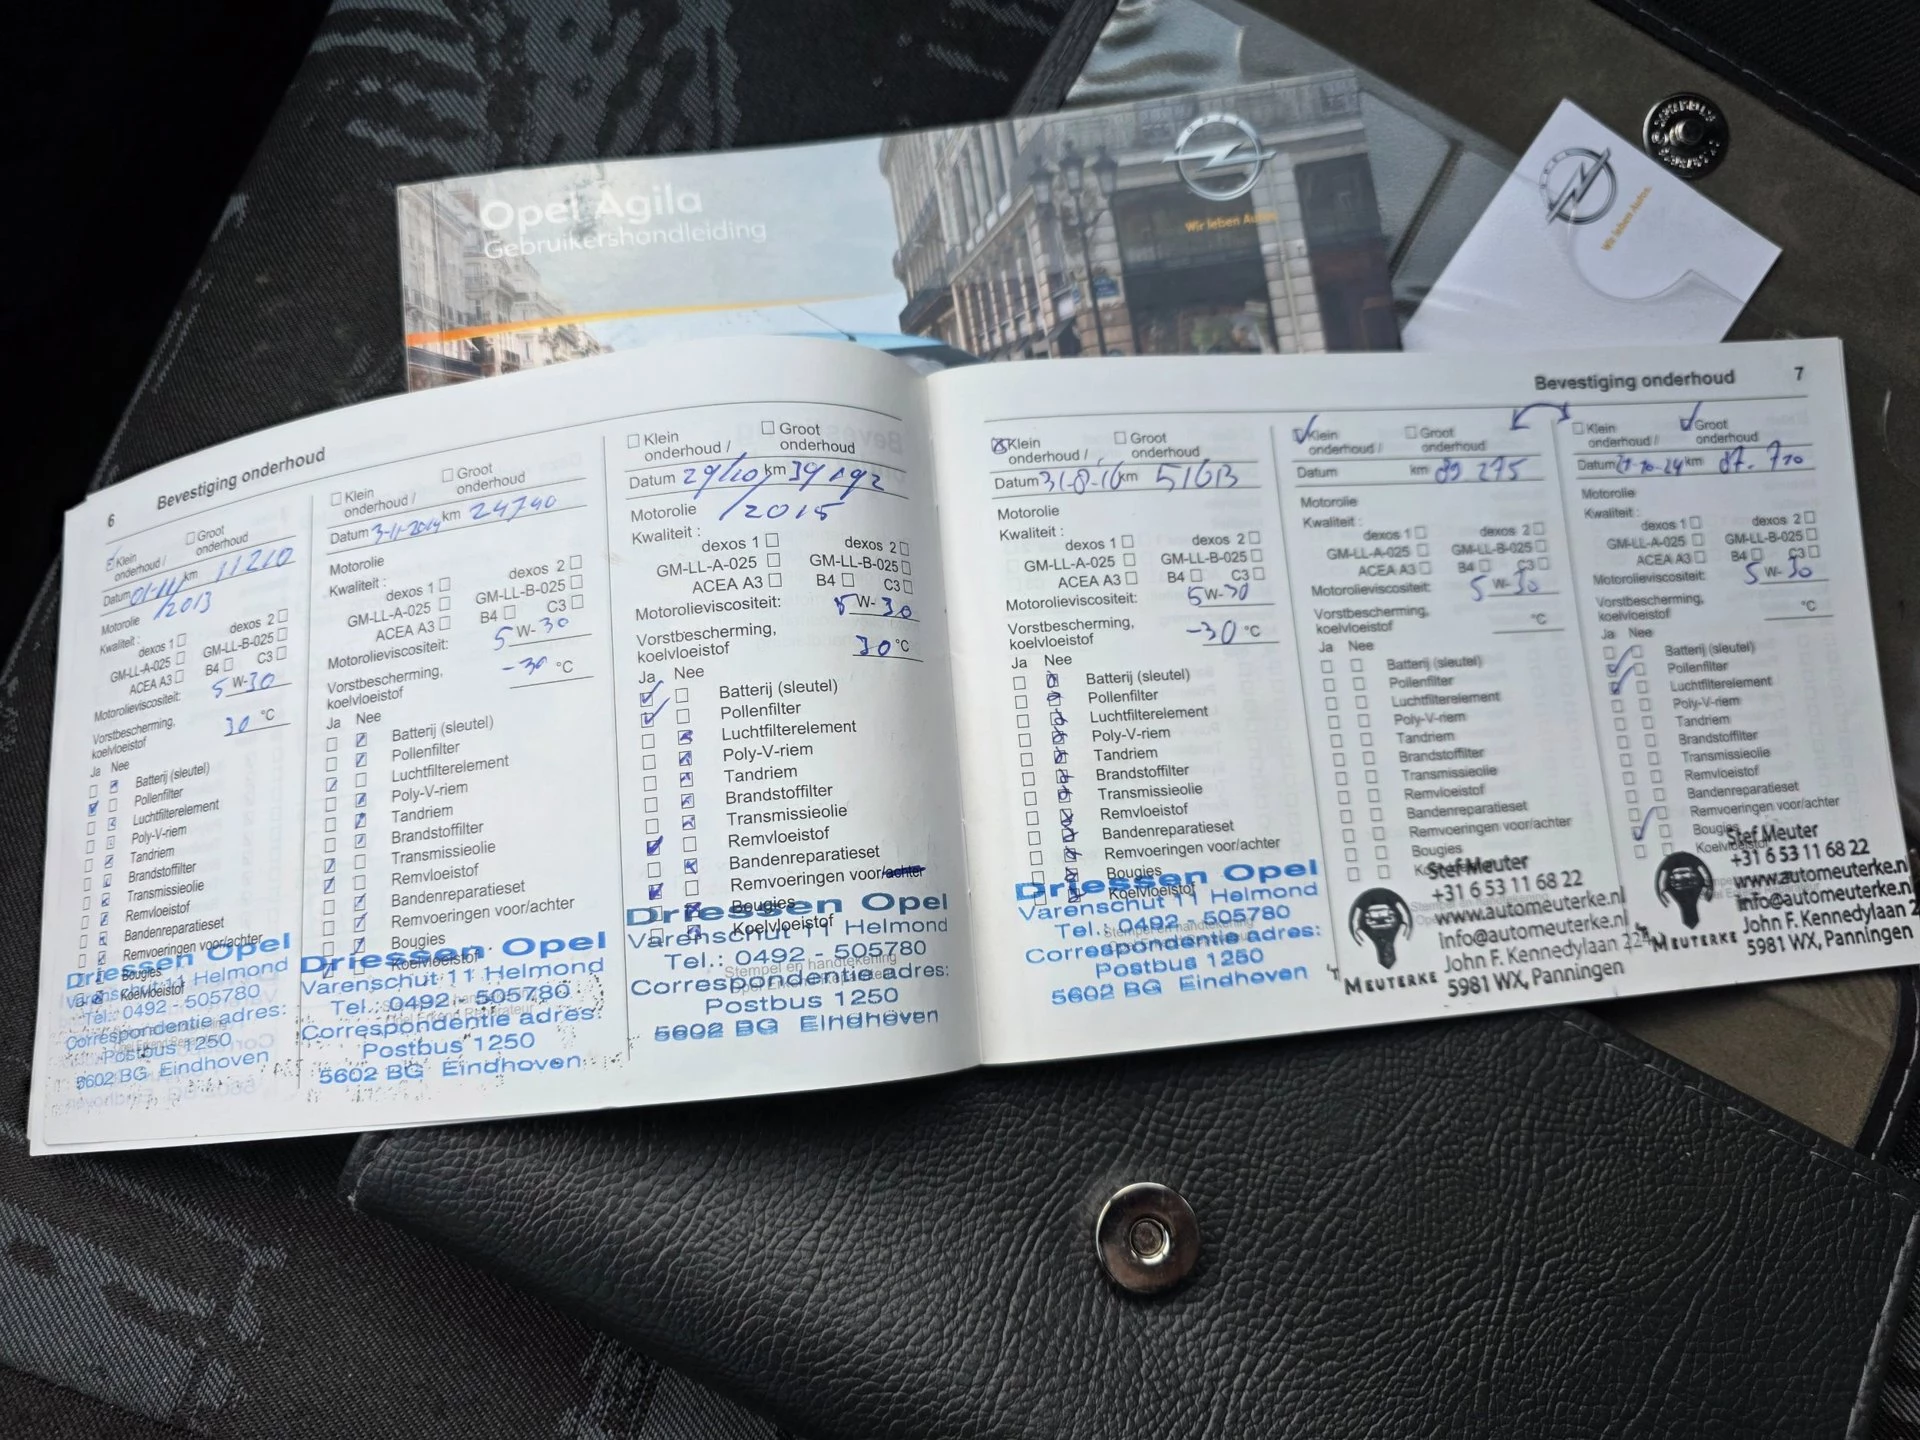 Opel Agila
Gebruikershandleiding
OPEL
Wir leben Autos.
Wir leben Autos.
6
Bevestiging onderhoud
Klein onderhoud /
Groot onderhoud
Datum 01-11/2013 km 11210
Motorolie
Kwaliteit :
dexos 1
dexos 2
GM-LL-A-025
GM-LL-B-025
ACEA A3
B4
C3
Motorolieviscositeit: 5 W- 30
Vorstbescherming, koelvloeistof
30 °C
Ja Nee
Batterij (sleutel)
Pollenfilter
Luchtfilterelement
Poly-V-riem
Tandriem
Brandstoffilter
Transmissieolie
Remvloeistof
Bandenreparatieset
Remvoeringen voor/achter
Bougies
Koelvloeistof
Driessen Opel
Varenschut 11 Helmond
Tel.: 0492 - 505780
Correspondentie adres:
Postbus 1250
5602 BG Eindhoven
Klein onderhoud /
Groot onderhoud
Datum 3-11-2014 km 24740
Motorolie
Kwaliteit :
dexos 1
dexos 2
GM-LL-A-025
GM-LL-B-025
ACEA A3
B4
C3
Motorolieviscositeit: 5 W- 30
Vorstbescherming, koelvloeistof
-30 °C
Ja Nee
Batterij (sleutel)
Pollenfilter
Luchtfilterelement
Poly-V-riem
Tandriem
Brandstoffilter
Transmissieolie
Remvloeistof
Bandenreparatieset
Remvoeringen voor/achter
Bougies
Koelvloeistof
Driessen Opel
Varenschut 11 Helmond
Tel.: 0492 - 505780
Correspondentie adres:
Postbus 1250
5602 BG Eindhoven
Klein onderhoud /
Groot onderhoud
Datum 29/10/2015 km 39192
Motorolie
Kwaliteit :
dexos 1
dexos 2
GM-LL-A-025
GM-LL-B-025
ACEA A3
B4
C3
Motorolieviscositeit: 5 W- 30
Vorstbescherming, koelvloeistof
30 °C
Ja Nee
Batterij (sleutel)
Pollenfilter
Luchtfilterelement
Poly-V-riem
Tandriem
Brandstoffilter
Transmissieolie
Remvloeistof
Bandenreparatieset
Remvoeringen voor/achter
Bougies
Koelvloeistof
Driessen Opel
Varenschut 11 Helmond
Tel.: 0492 - 505780
Stempel en handtekening
Correspondentie adres:
Postbus 1250
5602 BG Eindhoven
Bevestiging onderhoud
7
Klein onderhoud /
Groot onderhoud
Datum 31-8-16 km 51613
Motorolie
Kwaliteit :
dexos 1
dexos 2
GM-LL-A-025
GM-LL-B-025
ACEA A3
B4
C3
Motorolieviscositeit: 5 W- 30
Vorstbescherming, koelvloeistof
-30 °C
Ja Nee
Batterij (sleutel)
Pollenfilter
Luchtfilterelement
Poly-V-riem
Tandriem
Brandstoffilter
Transmissieolie
Remvloeistof
Bandenreparatieset
Remvoeringen voor/achter
Bougies
Koelvloeistof
Driessen Opel
Varenschut 11 Helmond
Tel.: 0492 - 505780
Stempel en handtekening
Correspondentie adres:
Postbus 1250
5602 BG Eindhoven
Klein onderhoud /
Groot onderhoud
Datum km 89 275
Motorolie
Kwaliteit :
dexos 1
dexos 2
GM-LL-A-025
GM-LL-B-025
ACEA A3
B4
C3
Motorolieviscositeit: 5 W- 30
Vorstbescherming, koelvloeistof
°C
Ja Nee
Batterij (sleutel)
Pollenfilter
Luchtfilterelement
Poly-V-riem
Tandriem
Brandstoffilter
Transmissieolie
Remvloeistof
Bandenreparatieset
Remvoeringen voor/achter
Bougies
Stef Meuter
+31 6 53 11 68 22
www.automeuterke.nl
info@automeuterke.nl
John F. Kennedylaan 224
5981 WX, Panningen
'T MEUTERKE
Klein onderhoud /
Groot onderhoud
Datum km 87.710
Motorolie
Kwaliteit :
dexos 1
dexos 2
GM-LL-A-025
GM-LL-B-025
ACEA A3
B4
C3
Motorolieviscositeit: 5 W- 30
Vorstbescherming, koelvloeistof
°C
Ja Nee
Batterij (sleutel)
Pollenfilter
Luchtfilterelement
Poly-V-riem
Tandriem
Brandstoffilter
Transmissieolie
Remvloeistof
Bandenreparatieset
Remvoeringen voor/achter
Bougies
Koelvloeistof
Stef Meuter
+31 6 53 11 68 22
www.automeuterke.nl
info@automeuterke.nl
John F. Kennedylaan 2
5981 WX, Panningen
'T MEUTERKE